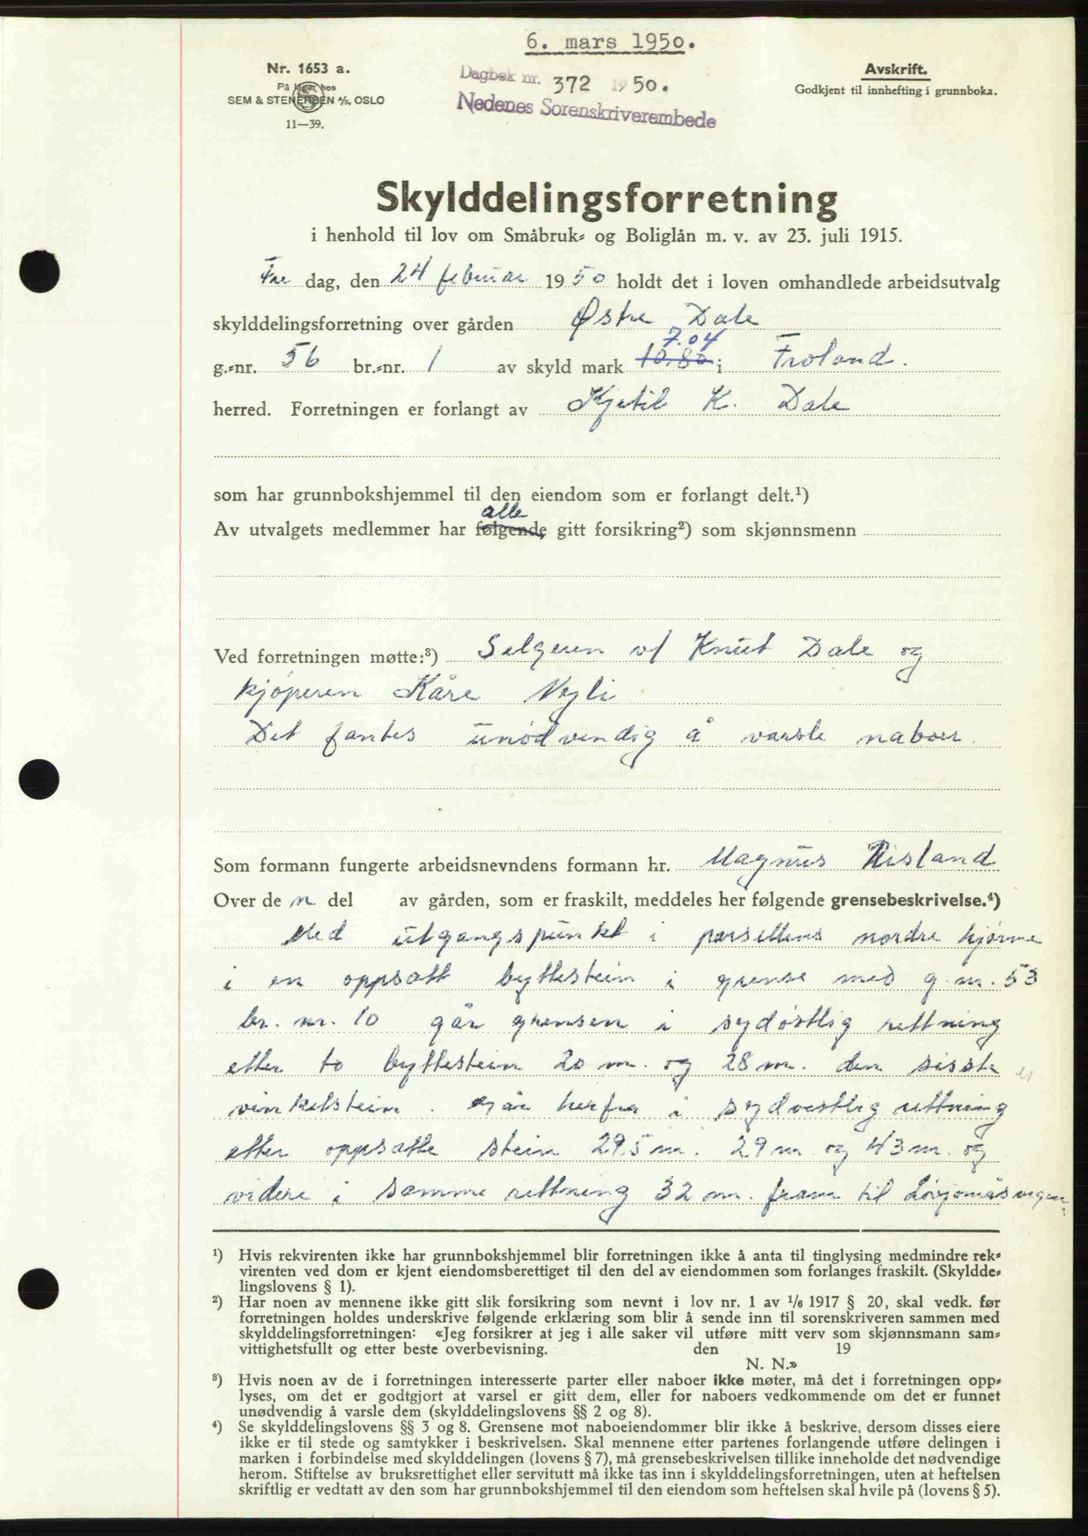 6. mars 1950.
Nr. 1653 a.
På lager hos
SEM & STENERSEN A/S, OSLO
11—39.
Dagbok nr. 372 1950.
Nedenes Sorenskriverembede
Avskrift.
Godkjent til innhefting i grunnboka.
Skylddelingsforretning
i henhold til lov om Småbruk- og Boliglån m. v. av 23. juli 1915.
Fre dag, den 24 februar 1950 holdt det i loven omhandlede arbeidsutvalg
skylddelingsforretning over gården Østre Dale
7.04
g.-nr. 56 br.-nr. 1 av skyld mark 10.80 i Froland.
herred. Forretningen er forlangt av Kjetil K. Dale
som har grunnbokshjemmel til den eiendom som er forlangt delt.¹)
alle
Av utvalgets medlemmer har følgende gitt forsikring²) som skjønnsmenn
Ved forretningen møtte:³) Selgeren v/ Knut Dale og
kjøperen Kåre Vegli
Det fantes unødvendig å varsle naboer.
Som formann fungerte arbeidsnevndens formann hr. Magnus Risland
Over den del av gården, som er fraskilt, meddeles her følgende grensebeskrivelse.⁴)
Med utgangspunkt i parsellens nordre hjørne
i en oppsatt byttestein i grense med g.nr. 53
br. nr. 10 går grensen i sydøstlig rettning
etter to byttestein 20 m. og 28 m. den sisste er
vinkelstein. Går herfra i sydvestlig rettning
etter oppsatte stein 29.5 m. 29 m og 43 m. og
videre i samme rettning 32 m. fram til
¹) Hvis rekvirenten ikke har grunnbokshjemmel blir forretningen ikke å anta til tinglysing medmindre rek-
virenten ved dom er kjent eiendomsberettiget til den del av eiendommen som forlanges fraskilt. (Skyldde-
lingslovens § 1).
²) Har noen av mennene ikke gitt slik forsikring som nevnt i lov nr. 1 av 1/6 1917 § 20, skal vedk. før
forretningen holdes underskrive følgende erklæring som blir å sende inn til sorenskriveren sammen med
skylddelingsforretningen: «Jeg forsikrer at jeg i alle saker vil utføre mitt verv som skjønnsmann sam-
vittighetsfullt og etter beste overbevisning. den 19
N. N.»
³) Hvis noen av de i forretningen interesserte parter eller naboer ikke møter, må det i forretningen opp-
lyses, om det er godtgjort at varsel er gitt dem, eller for naboers vedkommende om det er funnet
unødvendig å varsle dem (skylddelingslovens §§ 2 og 8).
⁴) Se skylddelingslovens §§ 3 og 8. Grensene mot naboeiendommer blir ikke å beskrive, dersom disses eiere
ikke er til stede og samtykker i beskrivelsen. Skal mennene etter partenes forlangende utføre delingen i
marken i forbindelse med skylddelingen (lovens § 7), må grensebeskrivelsen tillike inneholde det nødvendige
herom. Stiftelse av bruksrettighet eller servitutt må ikke tas inn i skylddelingsforretningen, uten at heftelsen
skriftlig er vedtatt av den som har grunnbokshjemmel til den eiendom som heftelsen skal hvile på (lovens § 5).